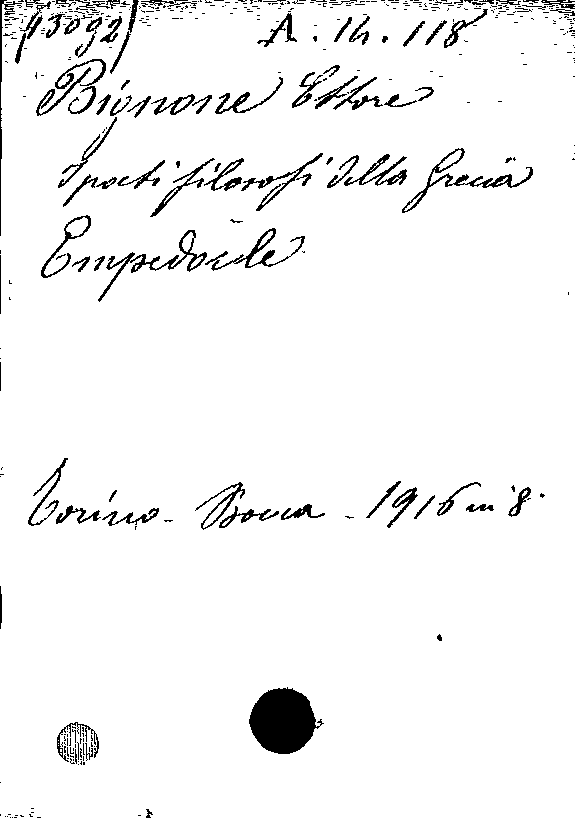 43092) A. 14. 118
Bignone Ettore
I poeti filosofi della Grecia
Empedocle
Torino - Bocca - 1916 in 8.